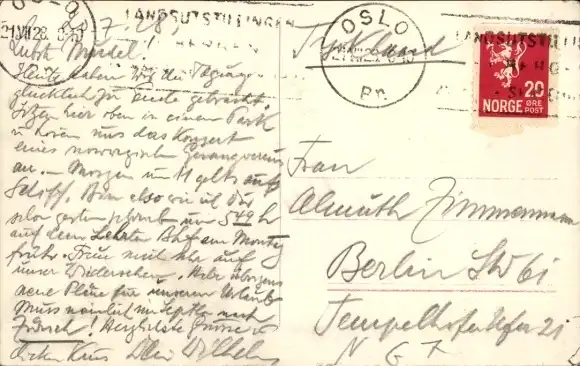 21 VII 28.
7. 28.
LANDSUTSTILLINGEN
BERGEN
OSLO
Br.
Tyskland
LANDSUTSTILLIN
NORGE 20 ØRE
POST
Liebste
Heute haben wir die Tagung
glücklich zu Ende gebracht.
Sitzen hier oben in einem Park
u. hören uns das Konzert
eines norwegischen Gesangvereins
an. Morgen um 11 gehts aufs
Schiff. Bin also wie ich Dir
schon gestern schrieb um 5 49 h
auf dem Lehrter Bhf am Montag
früh. Freue mich sehr auf
unser Wiedersehen. Habe übrigens
neue Pläne für unseren Urlaub
Muss nämlich im Septbr. nach
Zürich! Herzlichste Grüsse u.
dicken Kuss Dein Wilhelm
Frau
Almuth Zimmermann
Berlin SW 61
Tempelhofer Ufer 21